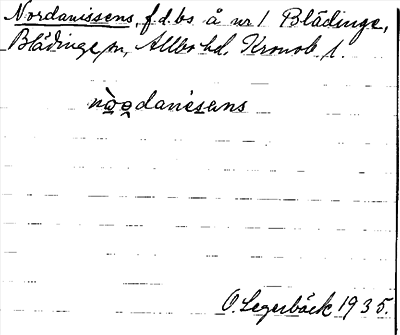 Nordanissens, f.d. bs å nr 1 Blädinge,
Blädinge sn, Allbo hd. Kronob. l.
O. Legerbäck 1935.